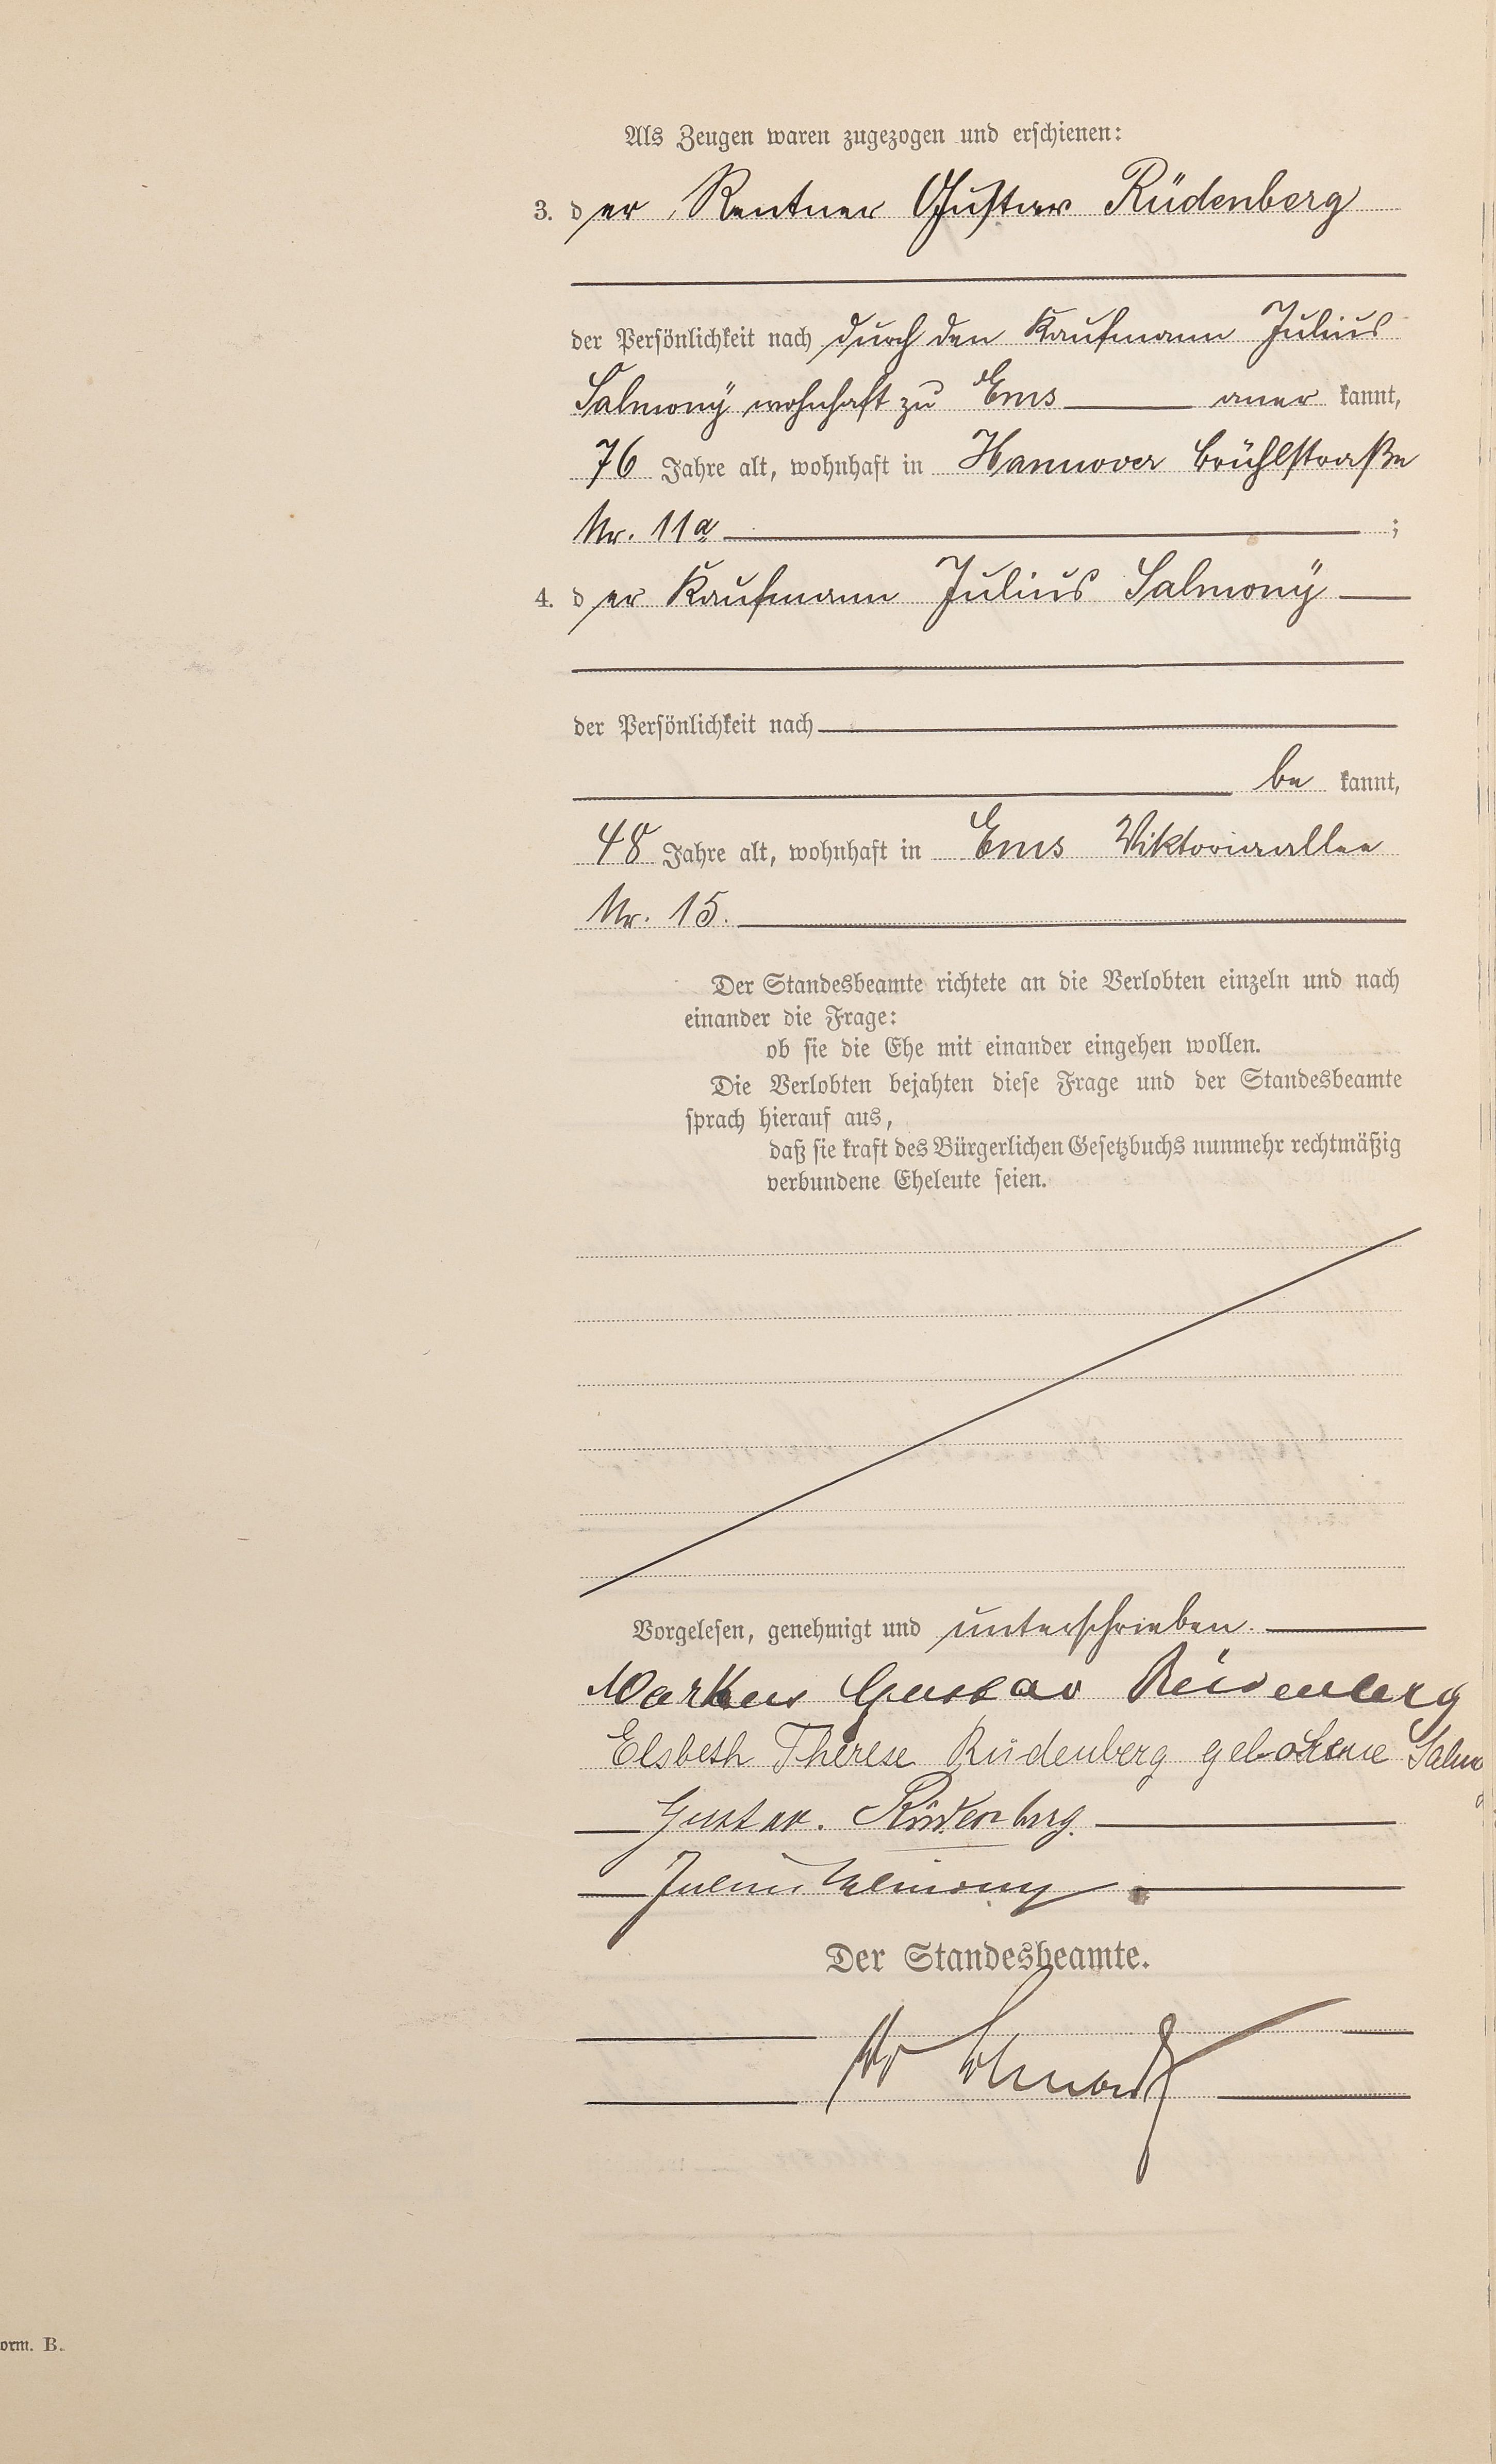 Als Zeugen waren zugezogen und erschienen:
3. der Rentner Gustav Rüdenberg
der Persönlichkeit nach durch den Kaufmann Julius
Salmonÿ wohnhaft zu Ems anerkannt,
76 Jahre alt, wohnhaft in Hannover Brühlstraße
Nr. 11a ;
4. der Kaufmann Julius Salmonÿ
der Persönlichkeit nach
bekannt,
48 Jahre alt, wohnhaft in Ems Viktoriaallee
Nr. 15.
Der Standesbeamte richtete an die Verlobten einzeln und nach
einander die Frage:
ob sie die Ehe mit einander eingehen wollen.
Die Verlobten bejahten diese Frage und der Standesbeamte
sprach hierauf aus,
daß sie kraft des Bürgerlichen Gesetzbuchs nunmehr rechtmäßig
verbundene Eheleute seien.
Vorgelesen, genehmigt und unterschrieben.
Markus Gustav Rüdenberg
Elsbeth Therese Rüdenberg geborene Salmo
Gustav. Rüdenberg.
Julius Salmony
Der Standesbeamte.
orm. B.